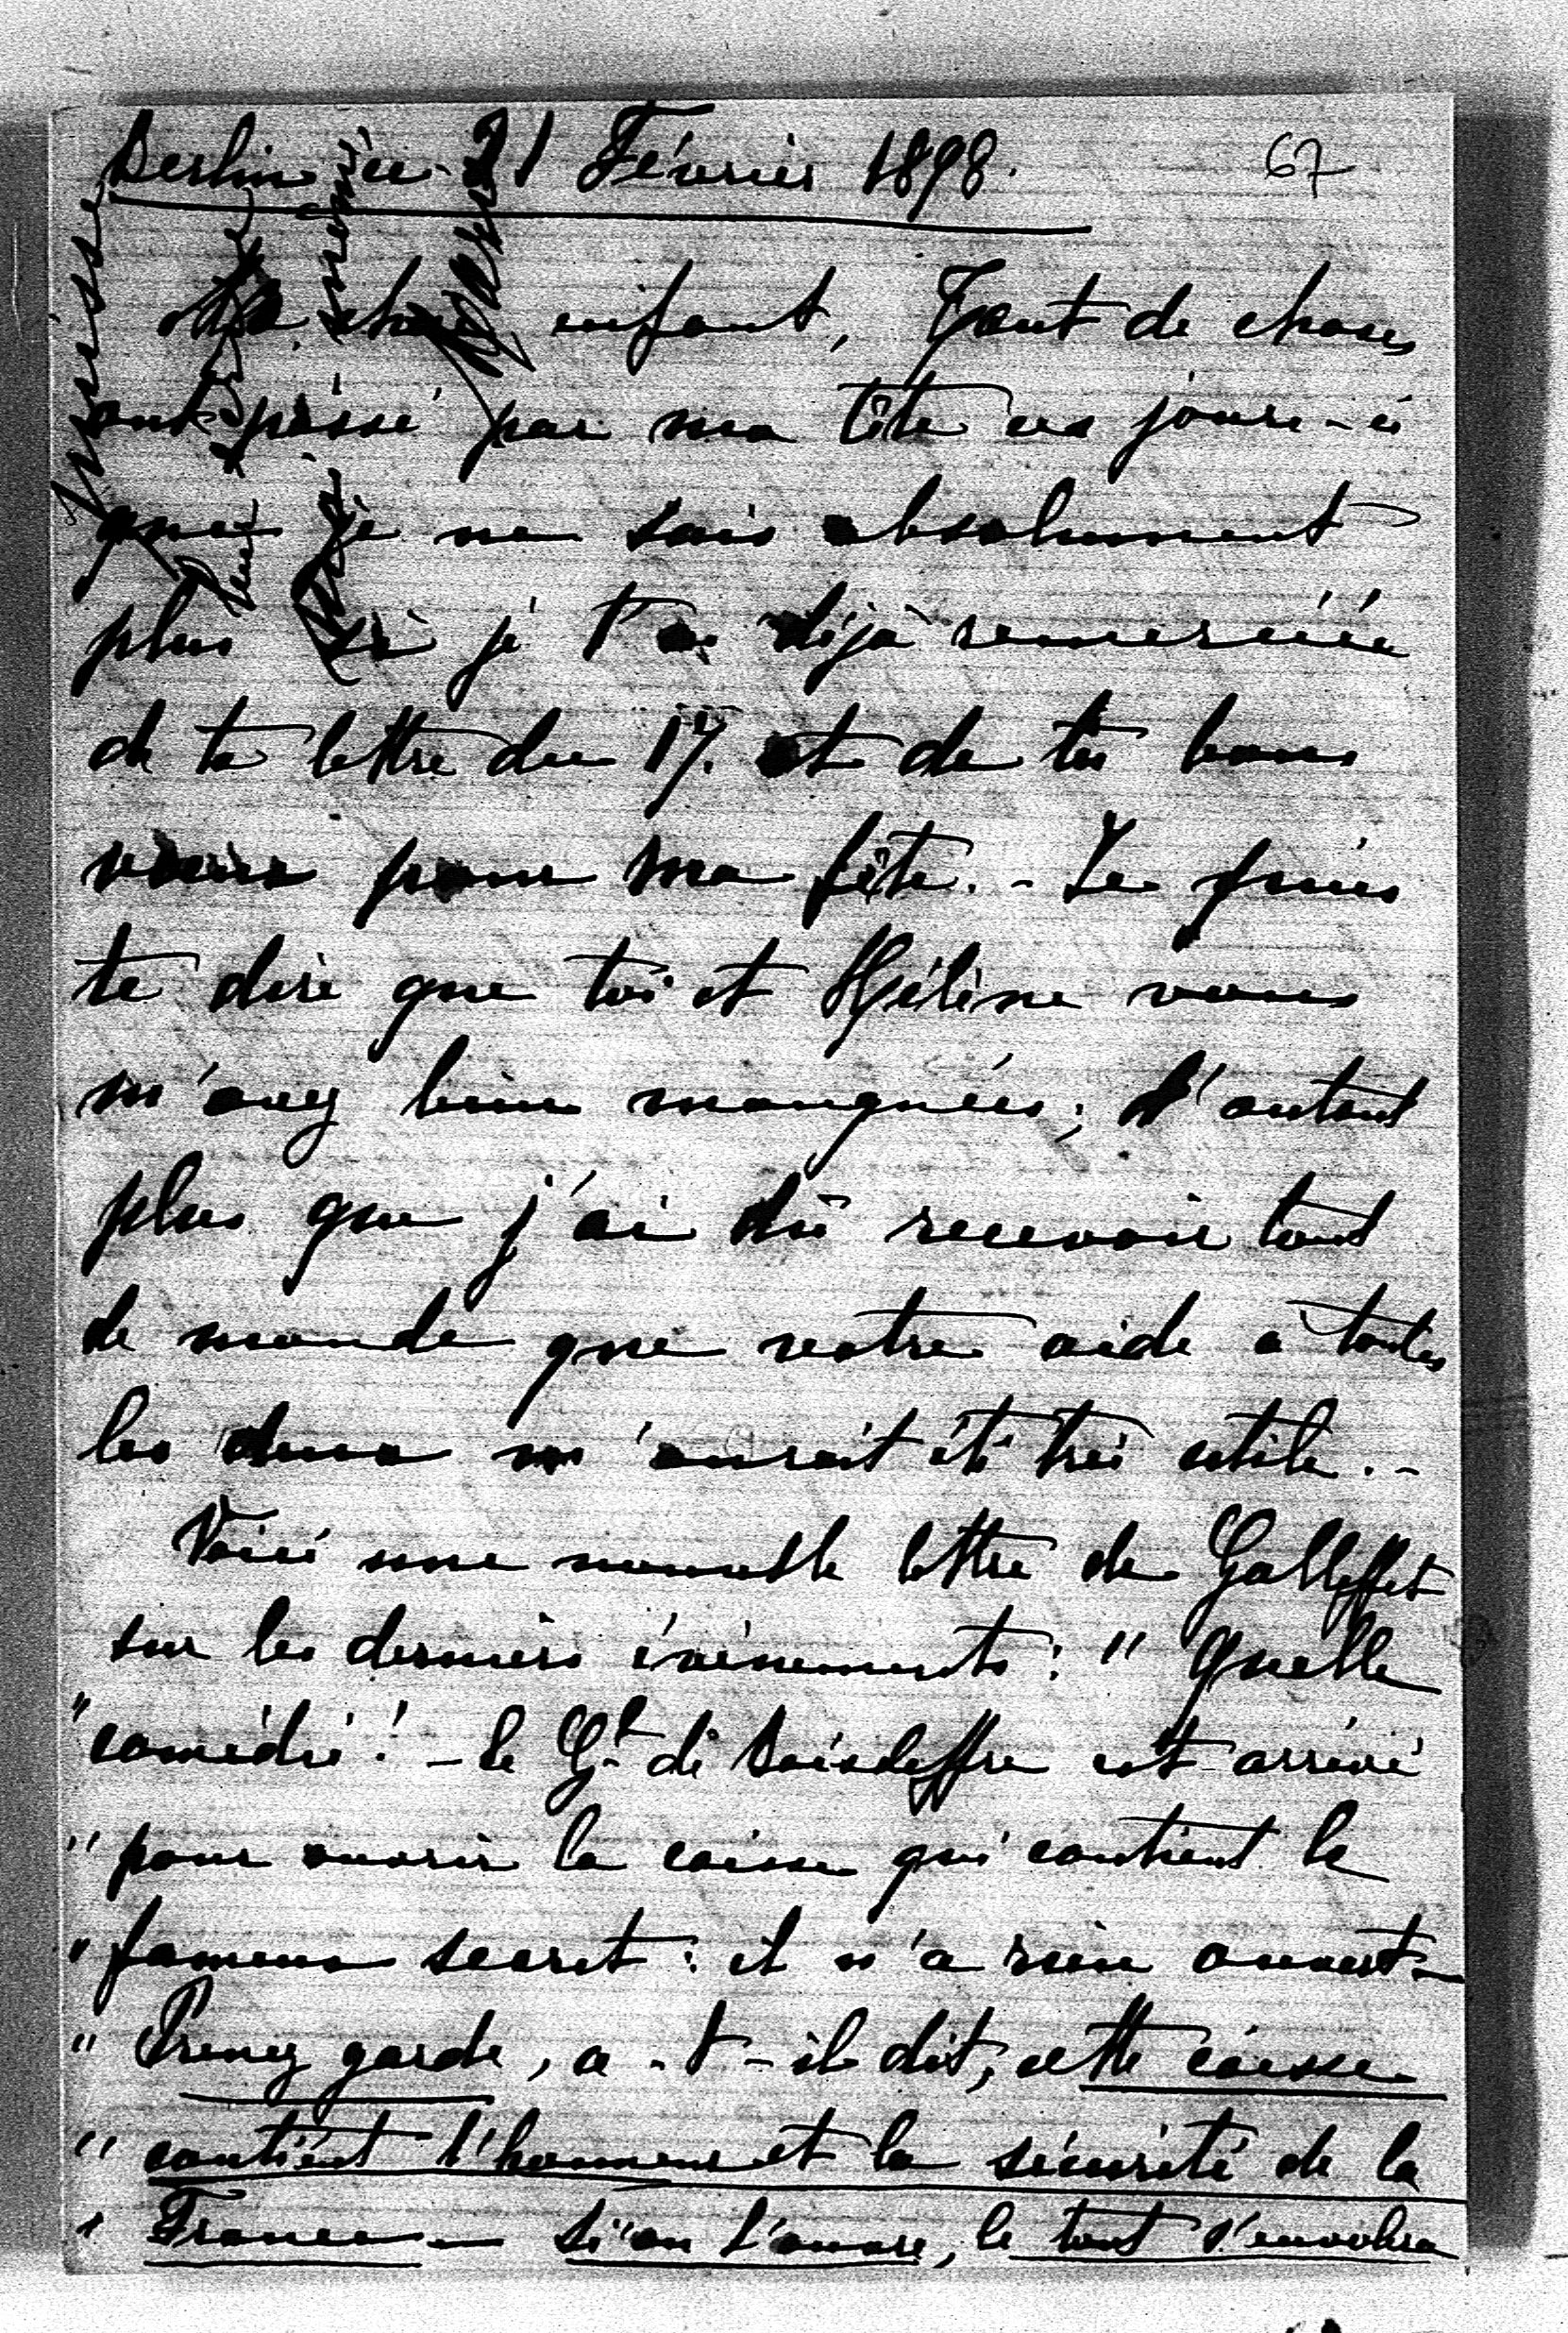 Berlin ce 21 Février 1898.
67
Ma chère enfant, Tant de choses
ont passé par ma tête ces jours-ci
que je ne sais absolument
plus si je t'ai déjà remerciée
de ta lettre du 17. et de tes bons
vœux pour ma fête. - Je puis
te dire que toi et Hélène vous
m'avez bien manquées; d'autant
plus que j'ai dû recevoir tant
de monde que votre aide à toutes
les deux m'aurait été très utile. -
Voici une nouvelle lettre de Galliffet
sur les derniers événements: " Quelle
" comédie! - le Gal de Boisdeffre est arrivé
" pour ouvrir la caisse qui contient le
" fameux secret: il n'a rien ouvert -
" Prenez garde, a-t-il dit, cette caisse
" contient l'honneur et la sécurité de la
" France - Si on l'ouvre, le tout s'envolera